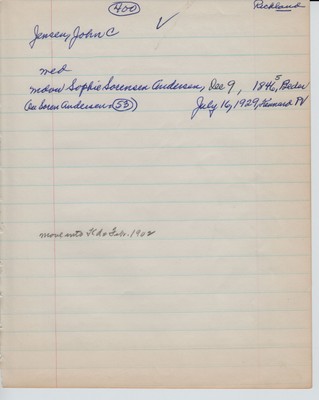 400
Richland
Jensen, John C
med
mdow Sophie Sorensen Andersen, Dec 9, 1846, Beder
(see Soren Andersen 53) July 16, 1929, Kennard
move into Feb. 1902